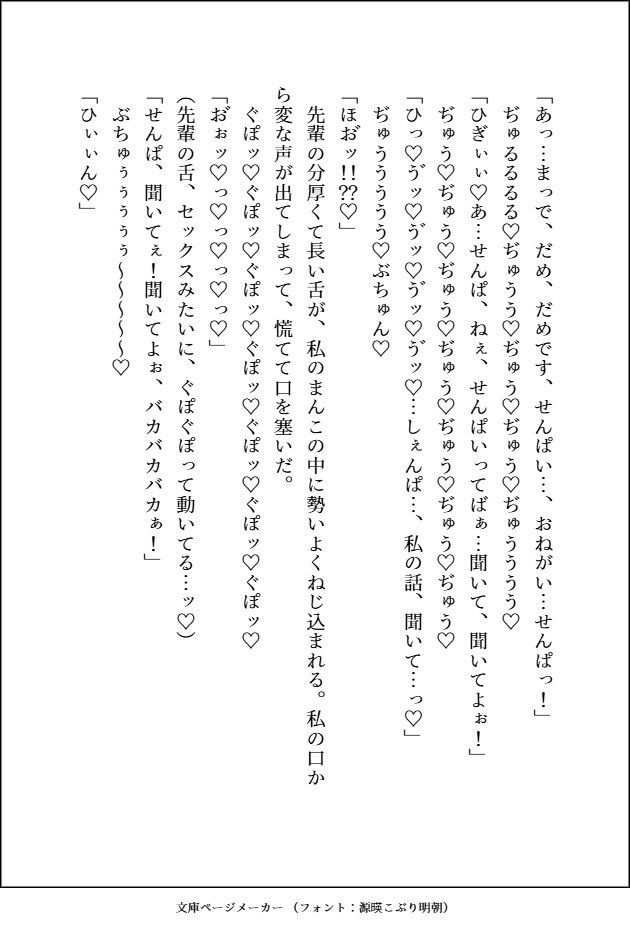 「あっ…まっで、だめ、だめです、せんぱい…、おねがい…せんぱっ！」
ぢゅるるるる♡ぢゅうう♡ぢゅう♡ぢゅう♡ぢゅうううう♡
「ひぎぃぃ♡あ…せんぱ、ねぇ、せんぱいってばぁ…聞いて、聞いてよぉ！」
ぢゅう♡ぢゅう♡ぢゅう♡ぢゅう♡ぢゅう♡ぢゅう♡ぢゅう♡
「ひっ♡ゔッ♡ゔッ♡ゔッ♡ゔッ♡…しぇんぱ…、私の話、聞いて…っ♡」
ぢゅううううう♡ぶちゅん♡
「ほお゙ッ!!??♡」
先輩の分厚くて長い舌が、私のまんこの中に勢いよくねじ込まれる。私の口か
ら変な声が出てしまって、慌てて口を塞いだ。
ぐぽッ♡ぐぽッ♡ぐぽッ♡ぐぽッ♡ぐぽッ♡ぐぽッ♡ぐぽッ♡
「お゙ぉッ♡っ♡っ♡っ♡っ♡」
(先輩の舌、セックスみたいに、ぐぽぐぽって動いてる…ッ♡)
「せんぱ、聞いてぇ！聞いてよぉ、バカバカバカぁ！」
ぶちゅぅぅぅぅぅ～～～～～♡
「ひぃぃん♡」
文庫ページメーカー （フォント：源暎こぶり明朝）